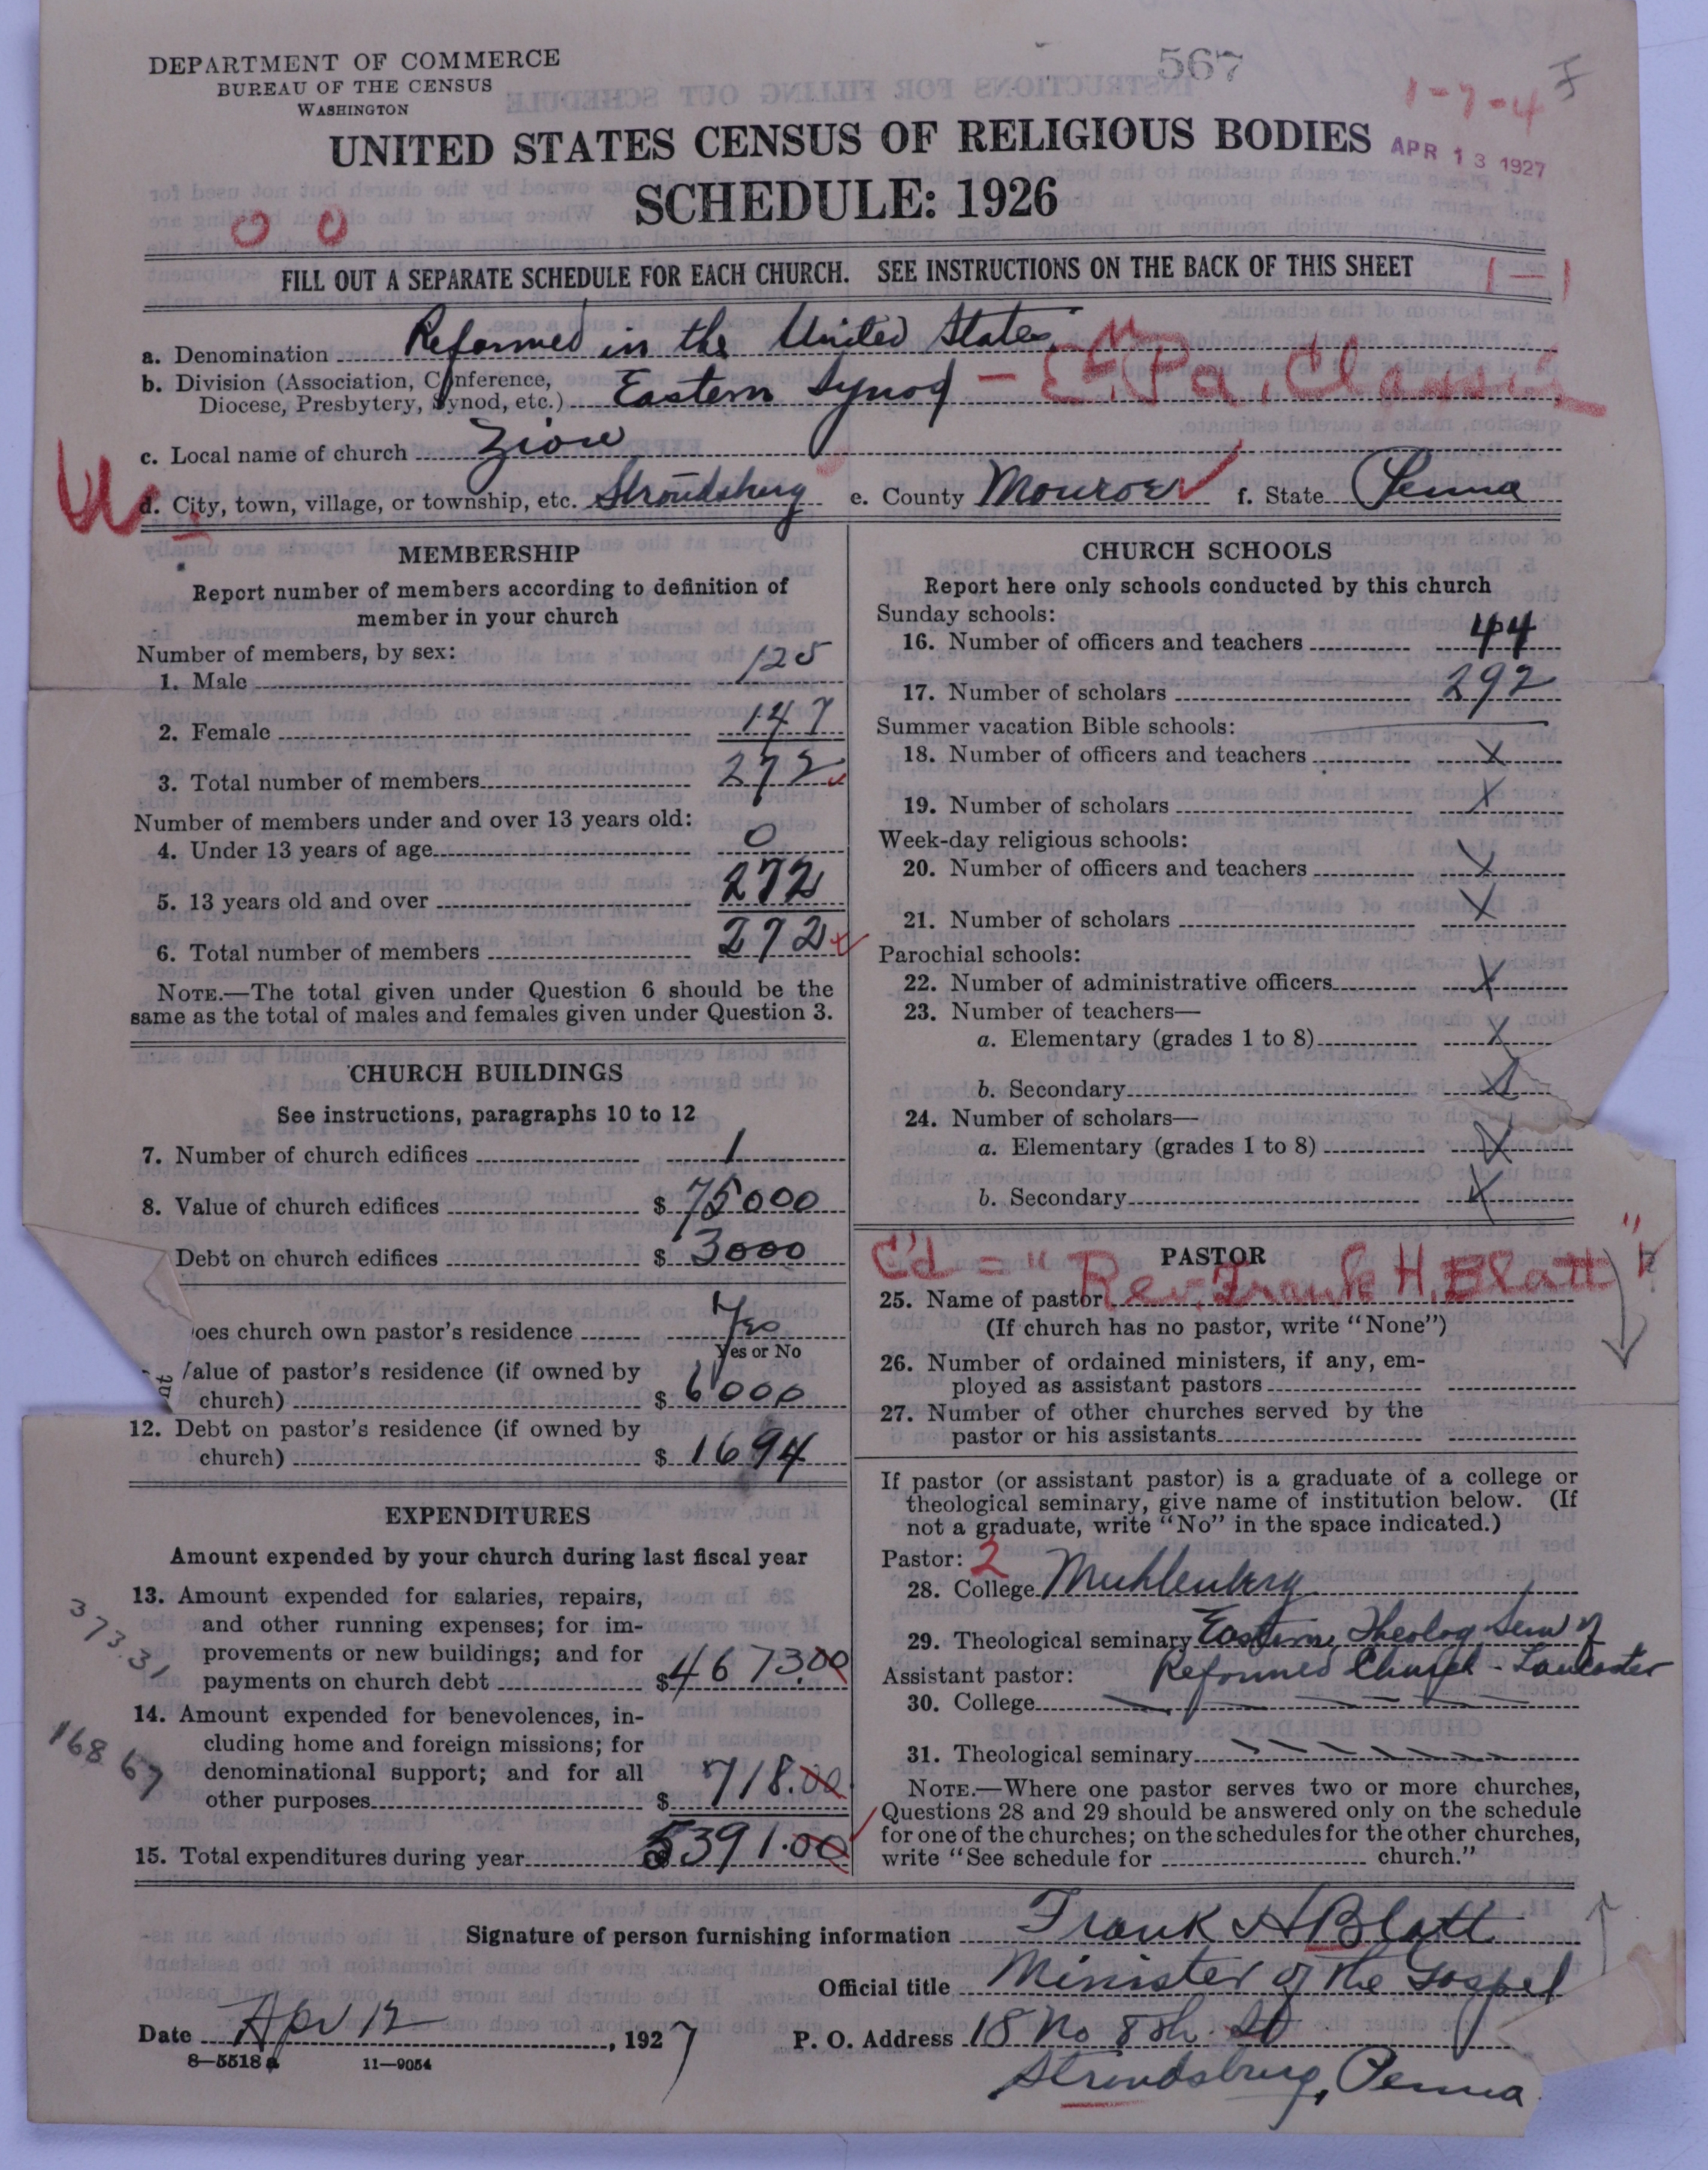 DEPARTMENT OF COMMERCE
BUREAU OF THE CENSUS
WASHINGTON
567
1-7-4
UNITED STATES CENSUS OF RELIGIOUS BODIES
APR 13 1927
SCHEDULE: 1926
0 0
FILL OUT A SEPARATE SCHEDULE FOR EACH CHURCH. SEE INSTRUCTIONS ON THE BACK OF THIS SHEET
1-1
a. Denomination Reformed in the United States
b. Division (Association, Conference,
Diocese, Presbytery, Synod, etc.) Eastern Synod - E. Pa. Classis
c. Local name of church Zion
d. City, town, village, or township, etc. Stroudsburg e. County Monroe f. State Penna
MEMBERSHIP
Report number of members according to definition of
member in your church
Number of members, by sex:
1. Male 125
2. Female 147
3. Total number of members 272
Number of members under and over 13 years old:
4. Under 13 years of age 0
5. 13 years old and over 272
6. Total number of members 272
NOTE.—The total given under Question 6 should be the
same as the total of males and females given under Question 3.
CHURCH BUILDINGS
See instructions, paragraphs 10 to 12
7. Number of church edifices 1
8. Value of church edifices $ 75000
Debt on church edifices $ 3000
oes church own pastor's residence Yes
Yes or No
alue of pastor's residence (if owned by
church) $ 6000
12. Debt on pastor's residence (if owned by
church) $ 1694
EXPENDITURES
Amount expended by your church during last fiscal year
13. Amount expended for salaries, repairs,
and other running expenses; for im-
provements or new buildings; and for
payments on church debt $ 4673.00
373.31
14. Amount expended for benevolences, in-
cluding home and foreign missions; for
denominational support; and for all
other purposes $ 718.00
168 67
15. Total expenditures during year 5391.00
CHURCH SCHOOLS
Report here only schools conducted by this church
Sunday schools:
16. Number of officers and teachers 44
17. Number of scholars 292
Summer vacation Bible schools:
18. Number of officers and teachers X
19. Number of scholars X
Week-day religious schools:
20. Number of officers and teachers X
21. Number of scholars X
Parochial schools:
22. Number of administrative officers X
23. Number of teachers—
a. Elementary (grades 1 to 8) X
b. Secondary X
24. Number of scholars—
a. Elementary (grades 1 to 8) X
b. Secondary X
PASTOR
C'd = " Rev. Frank H. Blatt "
25. Name of pastor
(If church has no pastor, write "None")
26. Number of ordained ministers, if any, em-
ployed as assistant pastors
27. Number of other churches served by the
pastor or his assistants
If pastor (or assistant pastor) is a graduate of a college or
theological seminary, give name of institution below. (If
not a graduate, write "No" in the space indicated.)
Pastor: 2
28. College Muhlenberg
29. Theological seminary Eastern Theolog Sem of
Reformed Church - Lancaster
Assistant pastor:
30. College
31. Theological seminary
NOTE.—Where one pastor serves two or more churches,
Questions 28 and 29 should be answered only on the schedule
for one of the churches; on the schedules for the other churches,
write "See schedule for church."
Signature of person furnishing information Frank H Blatt
Official title Minister of the Gospel
Date Apr 12, 1927 P. O. Address 18 No 8th St
Stroudsburg, Penna
8—5518a 11—9054